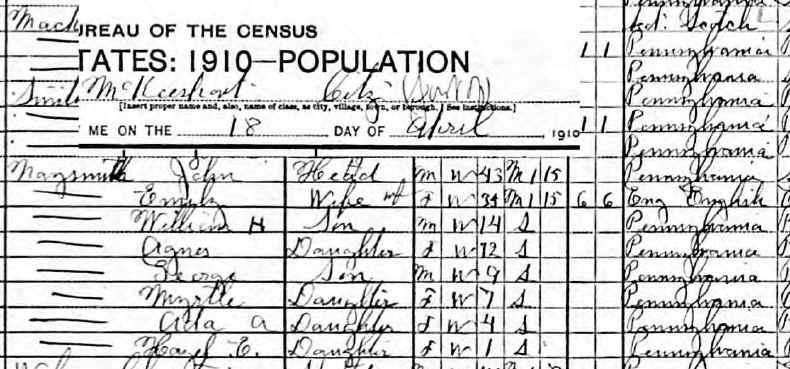 Mack Pennsylvania
Sct. Scotch
UREAU OF THE CENSUS 1 1 Pennsylvania
TATES: 1910—POPULATION Pennsylvania
McKeesport City Pennsylvania
[Insert proper name and, also, name of class, as city, village, town, or borough. See instructions.]
ME ON THE 18 DAY OF April 1910 1 1 Pennsylvania
Pennsylvania
Naysmith John Head M W 43 M 1 15 Pennsylvania
— Emily Wife F W 34 M 1 15 6 6 Eng English
— William H Son M W 14 S Pennsylvania
— Agnes Daughter F W 12 S Pennsylvania
— George Son M W 9 S Pennsylvania
— Myrtle Daughter F W 7 S Pennsylvania
— Ada A Daughter F W 4 S Pennsylvania
— Hazel E. Daughter F W 1 S Pennsylvania